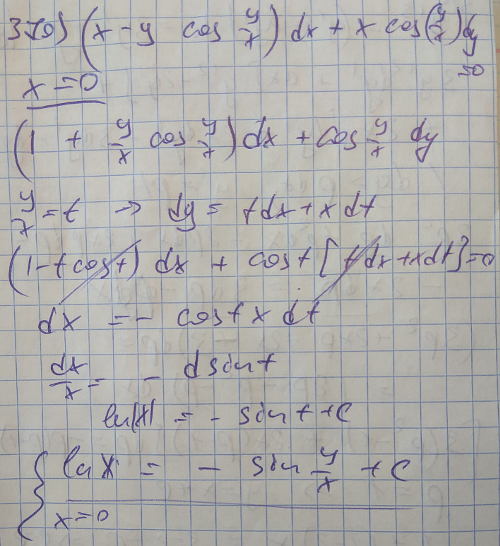 3701) (x - y cos y/x) dx + x cos(y/x) dy = 0
x = 0
(1 + y/x cos y/x) dx + cos y/x dy
y/x = t → dy = tdx + x dt
(1 - t cos t) dx + cos t [tdx + xdt] = 0
dx = - cos t x dt
dx/x = - d sin t
ln|x| = - sin t + c
ln x = - sin y/x + c
x = 0